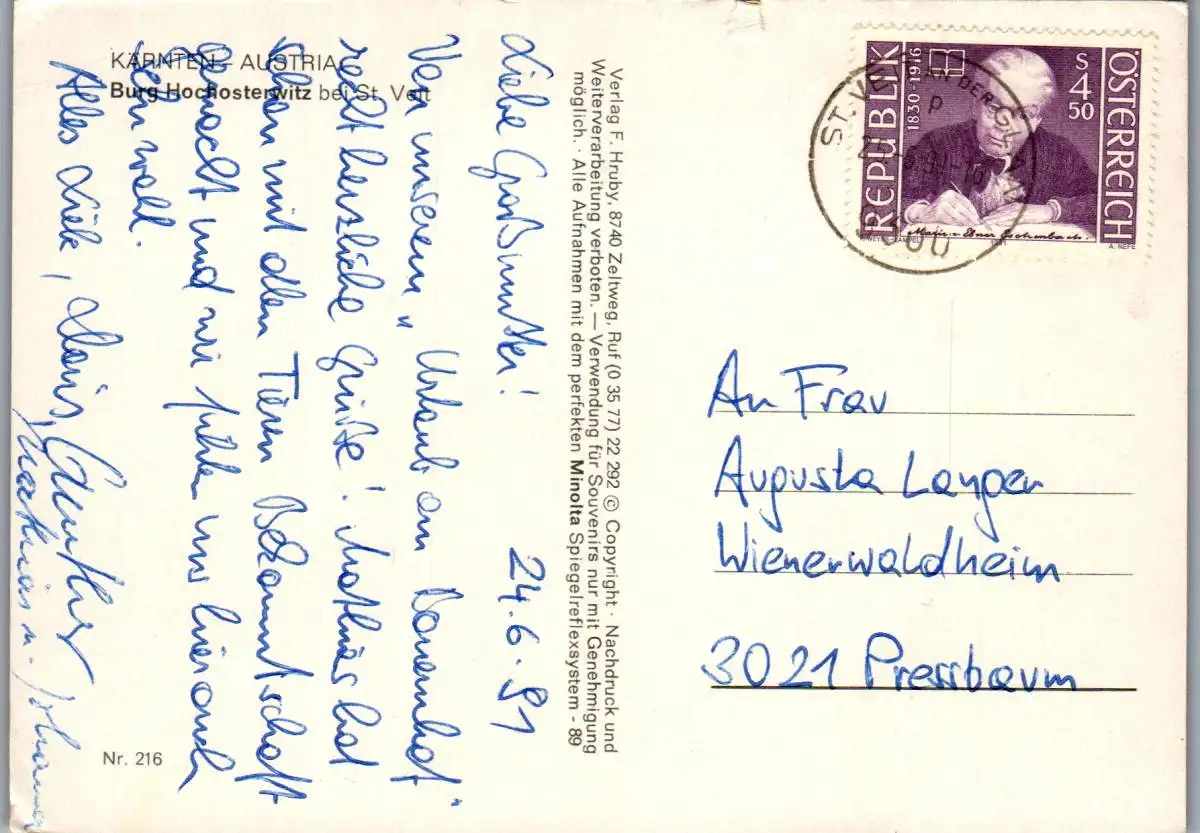 KÄRNTEN – AUSTRIA
Burg Hochosterwitz bei St. Veit
Liebe Großmutter!
24.6.91
Von unserem „Urlaub am Bauernhof“
recht herzliche Grüße! Mathias hat
schon mit allen Tieren Bekanntschaft
gemacht und wir fühlen uns hier auch
sehr wohl.
Alles Liebe, Doris, Gunther
Mathias u. Johannes
Nr. 216
Verlag F. Hruby, 8740 Zeltweg, Ruf (0 35 77) 22 292 © Copyright · Nachdruck und
Weiterverarbeitung verboten. — Verwendung für Souvenirs nur mit Genehmigung
möglich. · Alle Aufnahmen mit dem perfekten Minolta Spiegelreflexsystem - 89
REPUBLIK
1830-1916
S 4 50
ÖSTERREICH
Marie v. Ebner Eschenbach.
A. NEFE
ST. VEIT AN DER GLAN
p
9300
An Frau
Augusta Langer
Wienerwaldheim
3021 Pressbaum